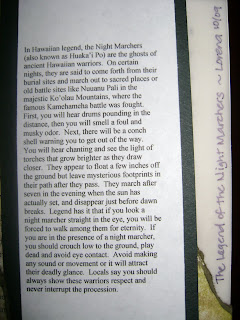 In Hawaiian legend, the Night Marchers
(also known as Huaka'i Po) are the ghosts of
ancient Hawaiian warriors. On certain
nights, they are said to come forth from their
burial sites and march out to sacred places or
old battle sites like Nuuanu Pali in the
majestic Ko'olau Mountains, where the
famous Kamehameha battle was fought.
First, you will hear drums pounding in the
distance, then you will smell a foul and
musky odor. Next, there will be a conch
shell warning you to get out of the way.
You will hear chanting and see the light of
torches that grow brighter as they draw
closer. They appear to float a few inches off
the ground but leave mysterious footprints in
their path after they pass. They march after
seven in the evening when the sun has
actually set, and disappear just before dawn
breaks. Legend has it that if you look a
night marcher straight in the eye, you will be
forced to walk among them for eternity. If
you are in the presence of a night marcher,
you should crouch low to the ground, play
dead and avoid eye contact. Avoid making
any sound or movement or it will attract
their deadly glance. Locals say you should
always show these warriors respect and
never interrupt the procession.
The Legend of the Night Marchers ~ Lorena 10/09